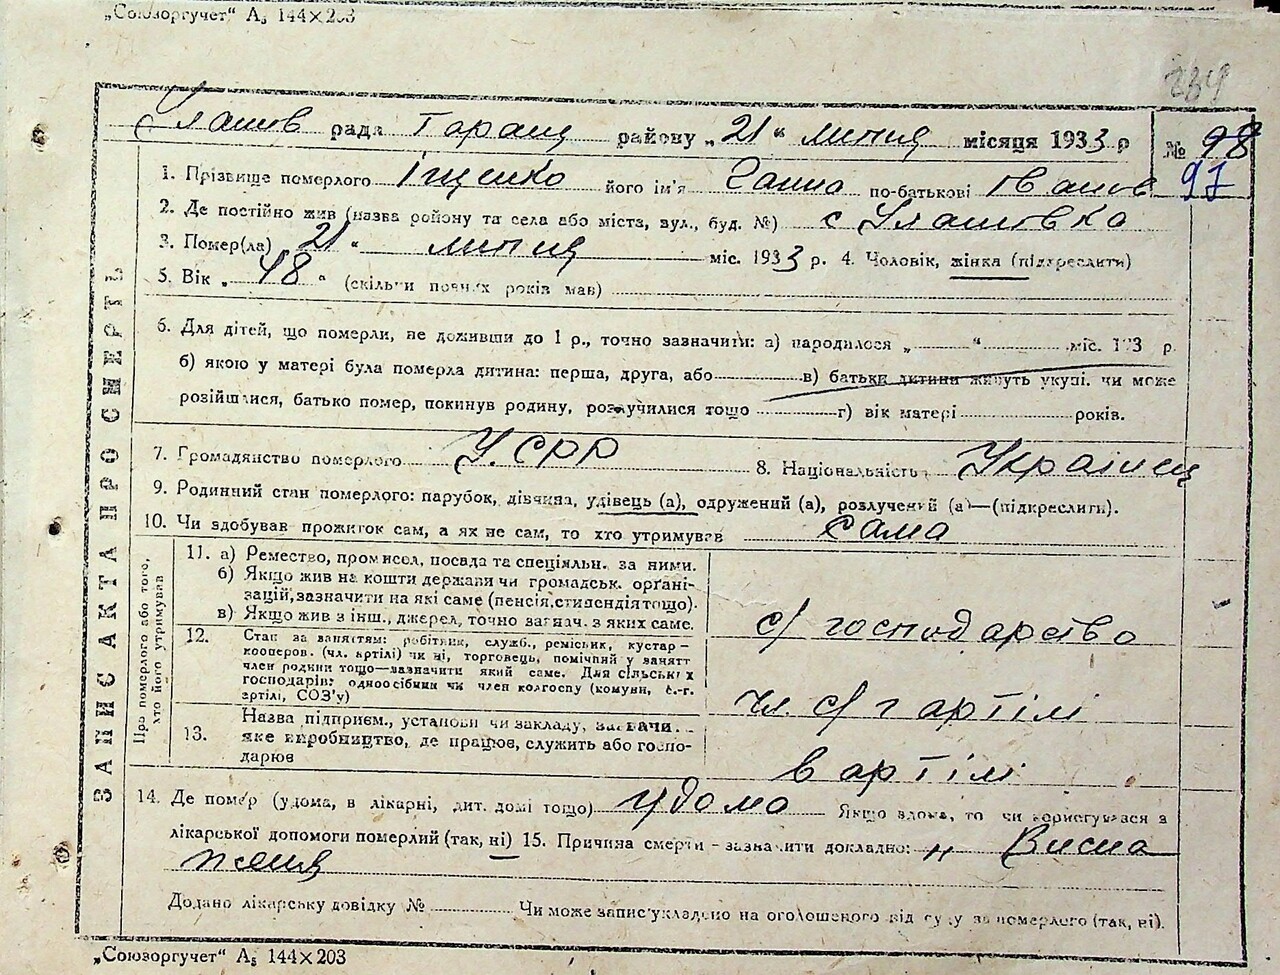 „Союзоргучет“ А₅ 144×203
234
Улашів рада Таращ району „21“ липня місяця 1933 р
№ 98
97
1. Прізвище померлого Іщенко його ім'я Ганна по-батькові Іванов
2. Де постійно жив (назва району та села або міста, вул., буд. №) с Улашовка
3. Помер(ла) „21“ липня міс. 1933 р. 4. Чоловік, жінка (підкреслити)
5. Вік „48“ (скільки повних років мав)
6. Для дітей, що померли, не доживши до 1 р., точно зазначити: а) народилося „ “ міс. 193 р.
б) якою у матері була померла дитина: перша, друга, або в) батьки дитини живуть укупі, чи може
розійшлися, батько помер, покинув родину, розлучилися тощо г) вік матері років.
7. Громадянство померлого УСРР 8. Національність Украінец
9. Родинний стан померлого: парубок, дівчина, удівець (а), одружений (а), розлучений (а)—(підкреслити).
10. Чи здобував прожиток сам, а як не сам, то хто утримував сама
ЗАПИС АКТА ПРО СМЕРТЬ
Про померлого або того,
хто його утримував
11. а) Ремество, промисел, посада та спеціяльн. за ними.
б) Якщо жив на кошти держави чи громадськ. орґані-
зацій, зазначити на які саме (пенсія, стипендія тощо).
в) Якщо жив з інш., джерел, точно зазнач. з яких саме.
с/господарство
12. Стан за заняттям: робітник, служб., реміснік, кустар-
кооперов. (чл. артілі) чи ні, торговець, помічний у занятт
член родини тощо—зазначити який саме. Для сільських
господарів: одноосібник чи член колгоспу (комуни, с.-г.
артілі, СОЗ'у)
чл. с/г артілі
13. Назва підприєм., установи чи закладу, зазначи..
яке виробництво, де працює, служить або госпо-
дарює
в артілі
14. Де помер (удома, в лікарні, дит. домі тощо) удома Якщо вдома, то чи користувався з
лікарської допомоги померлий (так, ні) 15. Причина смерти - зазначити докладно: Висна
ження
Додано лікарську довідку № Чи може запис укладено на оголошеного від суду за померлого (так, ні).
„Союзоргучет“ А₅ 144×203